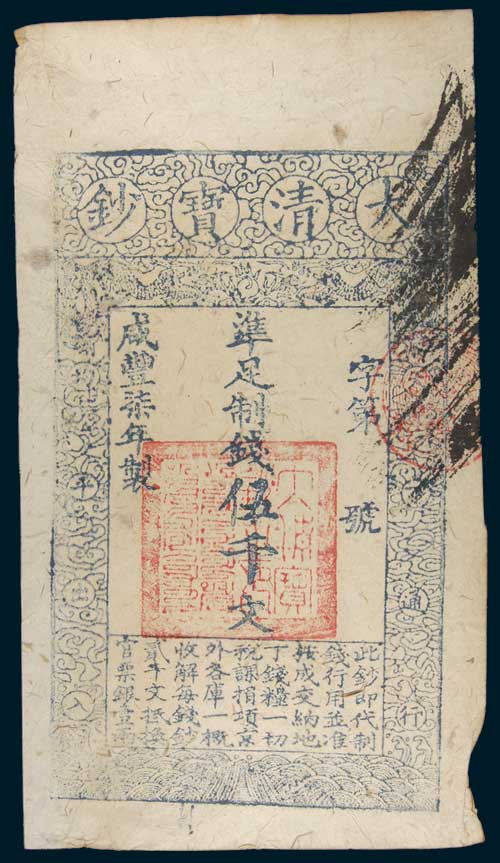 大清寶鈔
字第 號
準足制錢伍千文
咸豐柒年製
通行
平出入
此鈔即代制
錢行用並准
按成交納地
丁錢糧一切
稅課捐項京
外各庫一概
收解每錢鈔
貳千文抵換
官票銀壹兩